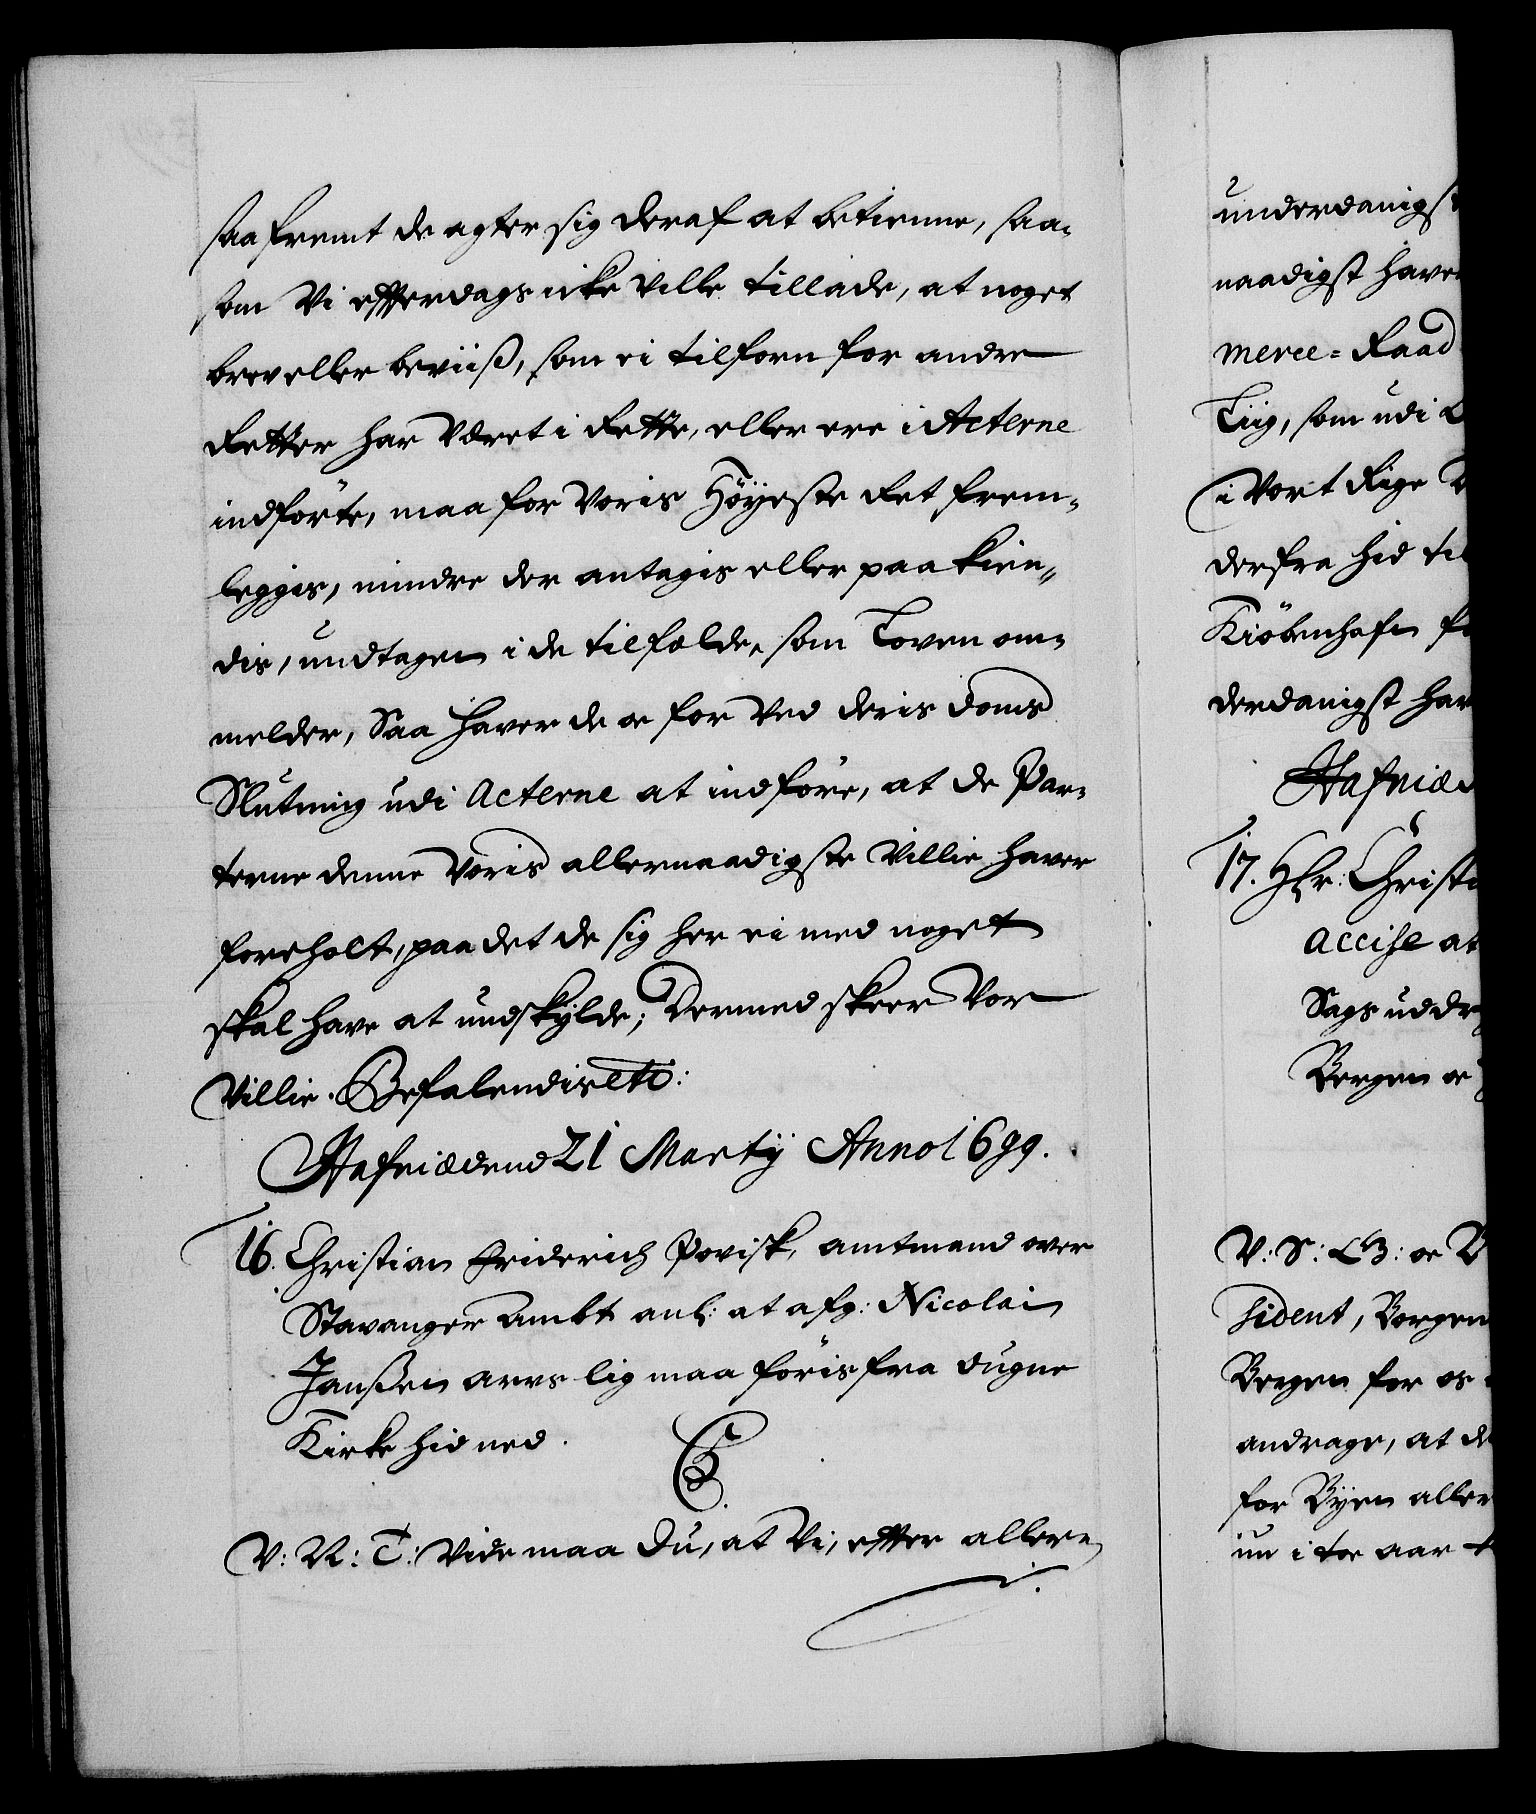 saafremt de agter sig deraf at betienne, saa-
som Vi effterdags icke ville tillade, at noget
brev eller beviiß, som ei tilforn for andre
Retter har Været i Rette, eller ere i Acterne
indförte, maa for Voris Höÿeste Ret frem-
legges, mindre der antages eller paakien-
dis, undtagen i de tilfælde, som Loven om-
melder, Saa haver de oc for Ved deris Doms
Slutning udi Acterne at indföre, at de Par-
terne denne Voris allernaadigste Villie haver
foreholt, paa det de sig her ei med noget
skal have at undskÿlde; Dermed skeer Vor
Villie. Befalendis etc:
Hafniæ dend 21 Martij Anno 1699.
16. Christian Friderich Povisk, amtmand over
Stavanger Ambt anl: at afg: Nicolai
Janßen arvs lig maa föris fra Augne
Kirke hid ned.
C5.
V: N: T: Vide maa Du, at Vi, effter aller-
underdanigst
naadigst have
merce-Raad
Liig, som udi
i Vort Rige
derfra hid til
Kiöbenhafn
derdanigst har
Hafniæ d
17. Hr: Christi
Accise at
Sags uddr
Bergen oc
V: S: C5: oc B
sident, Borgem
Bergen for os
andrage, at de
for Bÿen aller
nu i toe aar